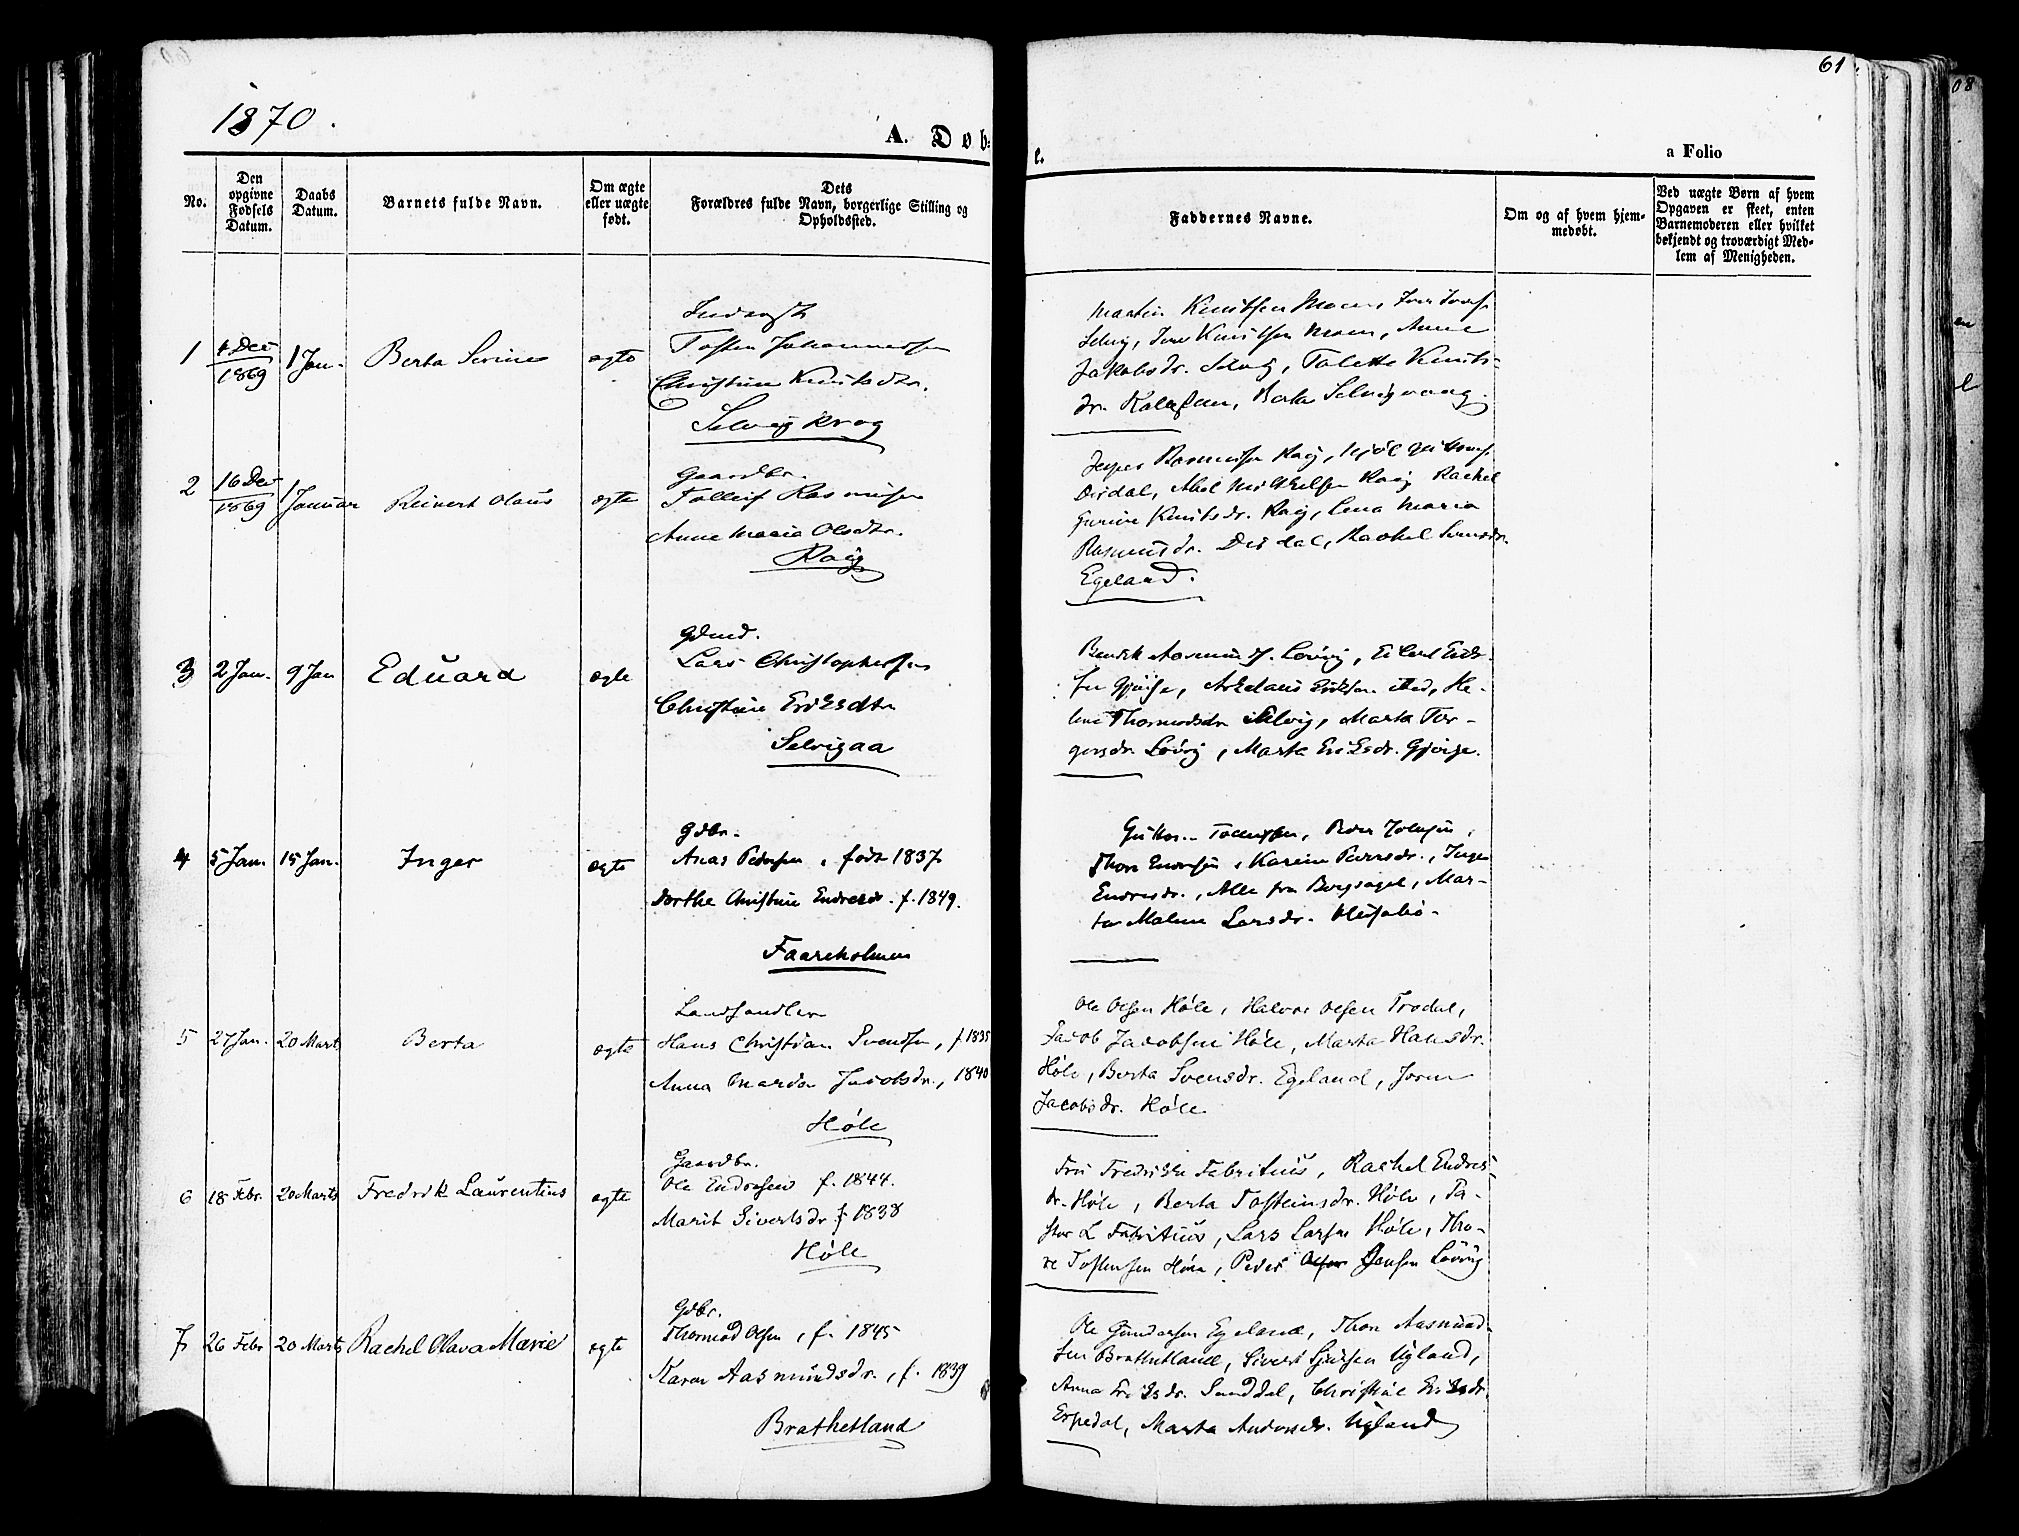 61
1870.
A. Døb=
e.
a Folio
No.
Den opgivne Fødsels Datum.
Daabs Datum.
Barnets fulde Navn.
Om ægte eller uægte født.
Dets Forældres fulde Navn, borgerlige Stilling og Opholdssted.
Faddernes Navne.
Om og af hvem hjem-
medøbt.
Ved uægte Børn af hvem
Opgaven er skeet, enten
Barnemoderen eller hvilket
bekjendt og troværdigt Med-
lem af Menigheden.
1 4 Dec 1869 1 Jan. Berta Serine ægte
Tosten Johannessen
Christine Knutsdtr.
Selvig krog
Martin Knutsen Moen,
Selvig, Knutsen Moen, Anne
Jakobsdr. Selvig, Talette Knuts-
dr. Berta
2 16 Dec 1869 1 Januar Reinert Olaus ægte
Gaardbr.
Tolleif Rasmusen
Anne Maria Olsdtr.
Roig
Jesper Rasmusen
Dirdal, Abel Rachel
Gurine Knutsdr. Lena Maria
Rasmusdr. Dirdal, Rachel Svensdr.
Egeland.
3 2 Jan. 9 Jan Eduard ægte
Gdmd.
Lars Christophersen
Christine Eriksdtr
Selvigaa
Bendik Aasmunds. Lovig,
Eriksen He-
lene Thormodsdr Selvig, Marta Tor-
gersdr. Marta Eriksdr.
4 5 Jan. 15 Jan. Inger ægte
Gdbr.
Anas Pedersen, født 1837
Dorthe Christine Endresdr. f. 1849.
Faareholmen
Guttor Tollefsen, Peder
Thore Endresen, Karine Peersdr., Inger
Endresdr., Alle fra Bergsagel, Mar-
ta Malene Larsdr.
5 27 Jan. 20 Marts Berta ægte
Landhandler
Hans Christian Svendsen, f 1835
Anna Marta Jacobsdr., 1840
Høle
Ole Olsen Høle, Halvor Olsen
Jacob Jacobsen Høle, Marta Hansdr.
Høle, Berta Svensdr. Egeland,
Jacobsdr. Høle
6 18 Febr. 20 Marts Fredrik Laurentius ægte
Gaardbr.
Ole Endresen f. 1844.
Marit Sivertsdr f 1838
Høle
Fru Fredrikke Fabritius, Rachel Endres
dr. Høle, Berta Tosteinsdr. Høle, Pa-
stor L Fabritius, Lars Larsen Høle, Tho-
re Tostensen Høle, Peder Olsen Jensen Lovig
7 26 Febr 20 Marts Rachel Olava Marie ægte
Gdbr.
Thormod Olsen, f. 1845
Karen Aasmundsdr., f. 1839
Brathetland
Ole Gundersen Egeland, Thore Aasmund-
sen Brathetland, Sivert Ugland,
Anna Eriksdr. Christine Eriksdr.
Espedal, Marta Andersdr. Ugland